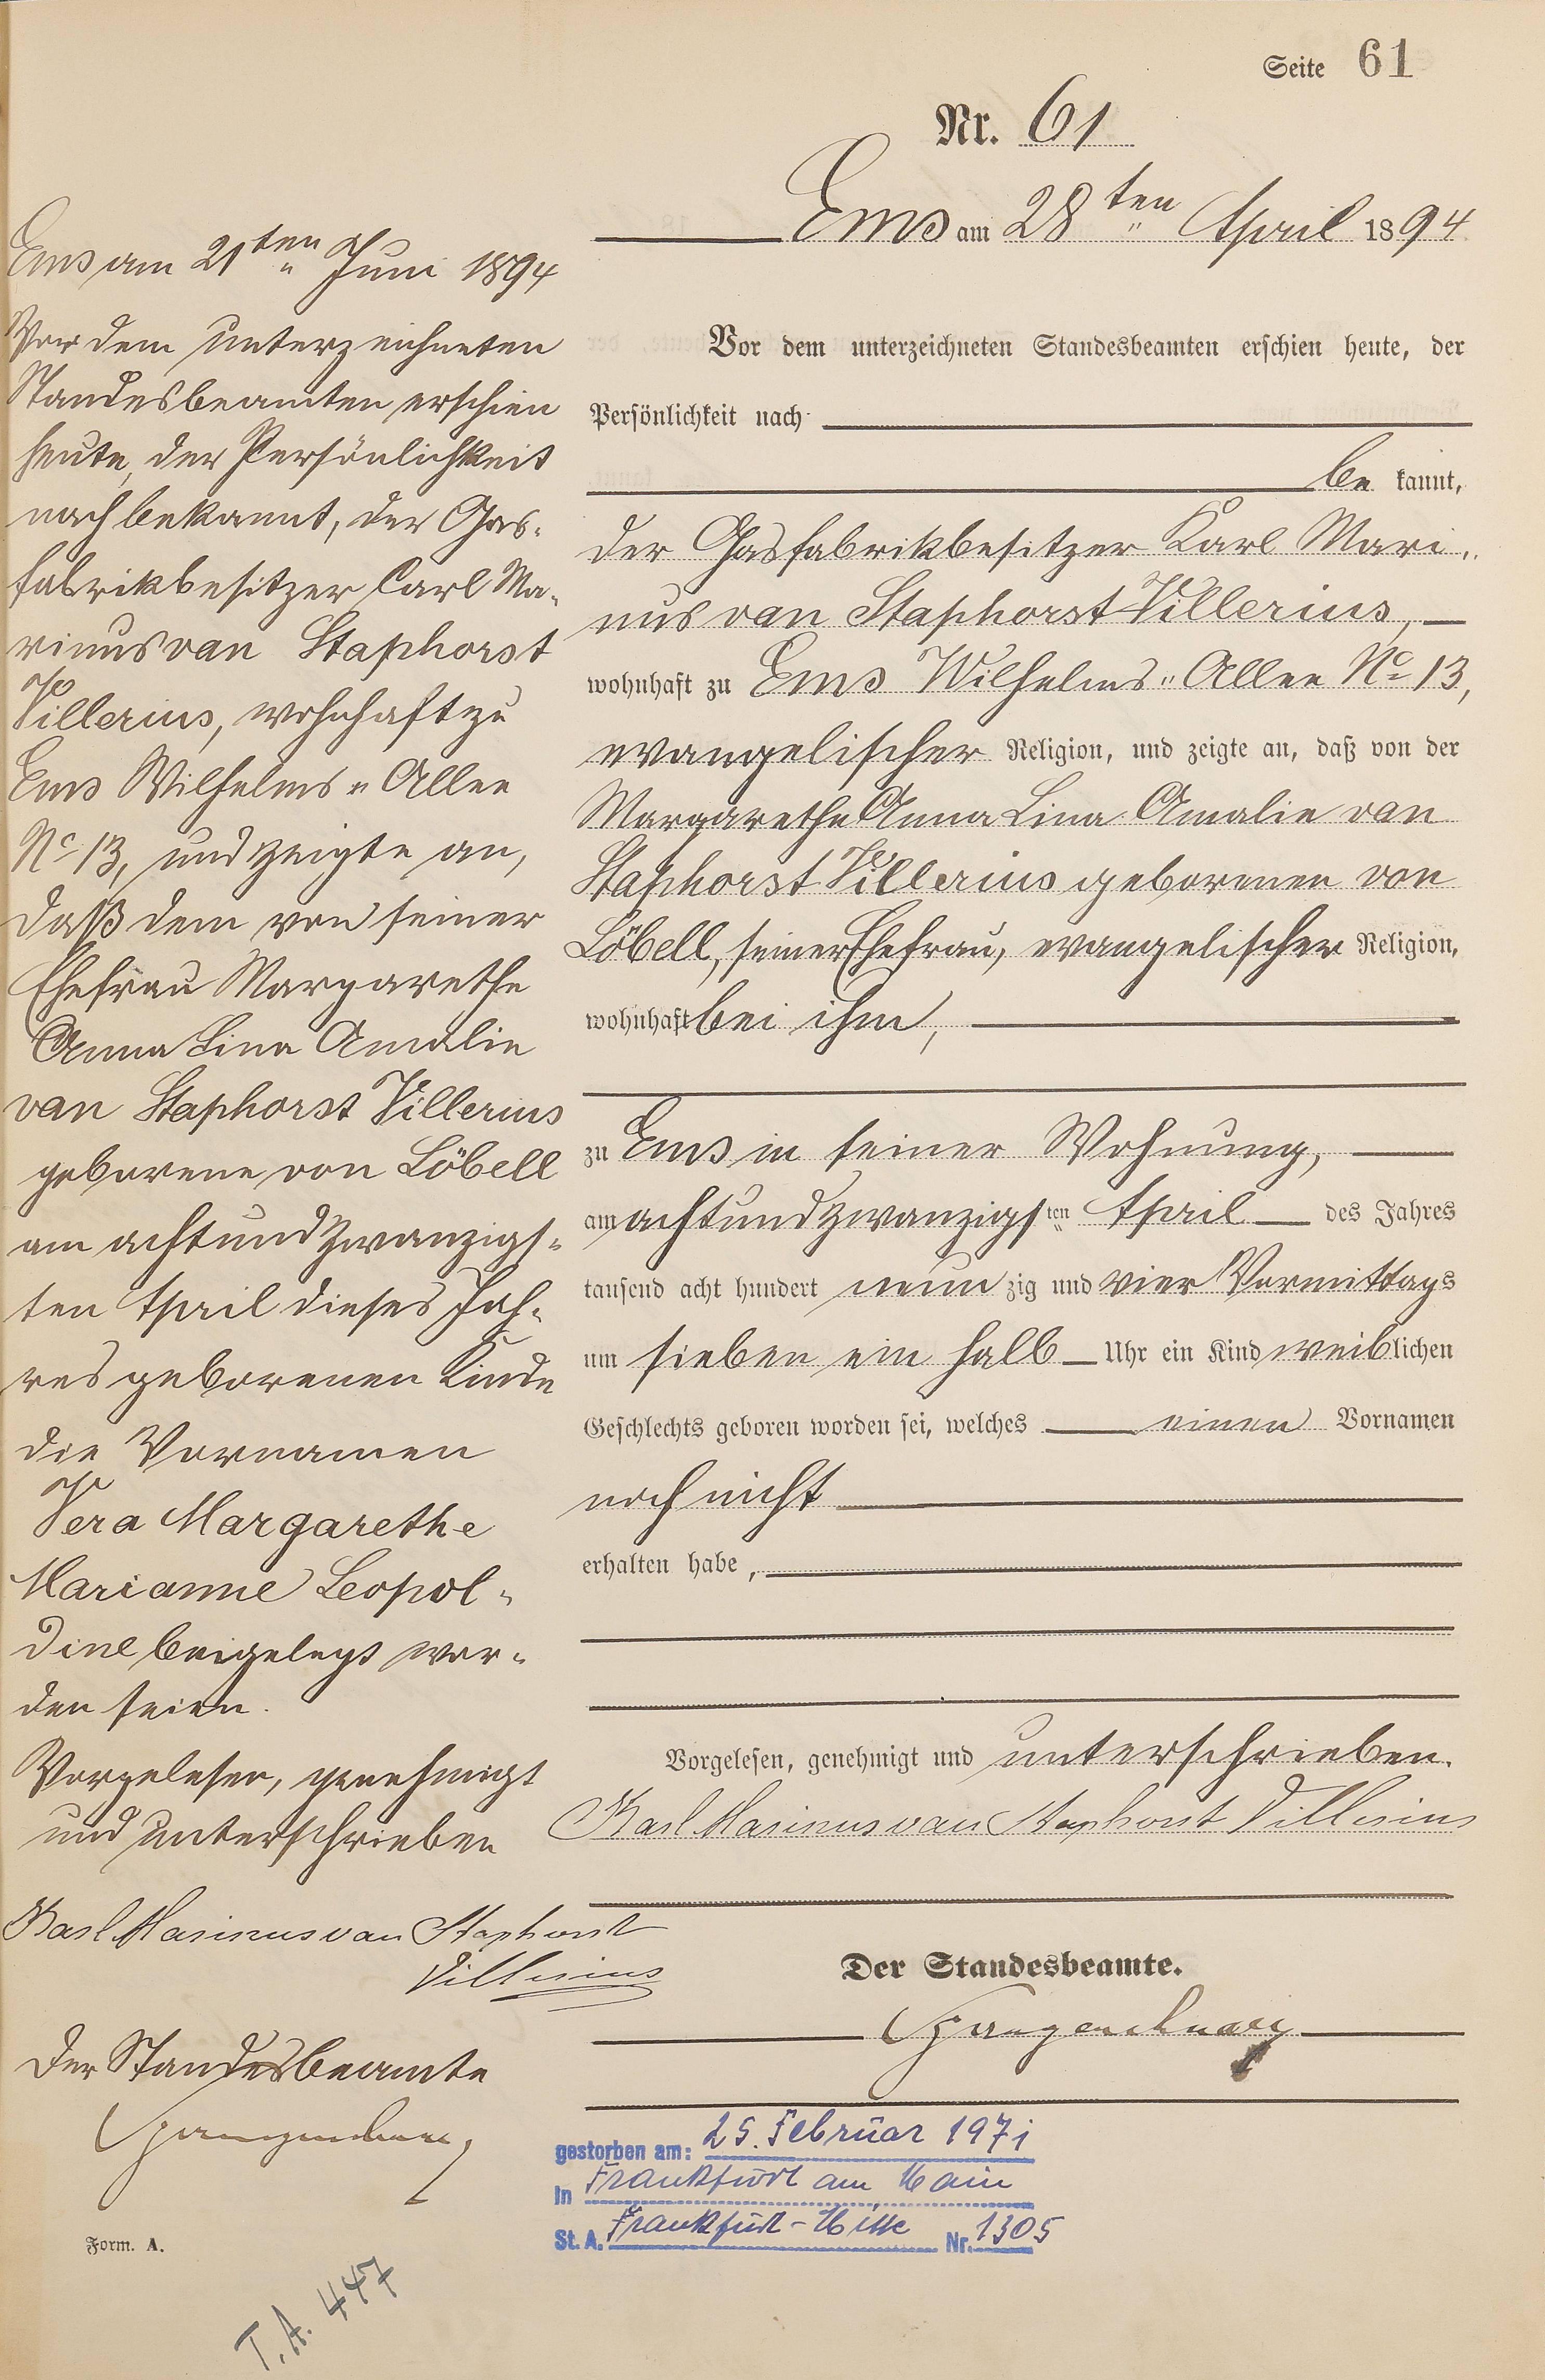 Seite 61
Nr. 61
Ems am 28ten April 1894
Vor dem unterzeichneten Standesbeamten erschien heute, der
Persönlichkeit nach
be kannt,
der Gasfabrikbesitzer Karl Mari„
nus van Staphorst Villerius,
wohnhaft zu Ems Wilhelms„Allee No 13,
evangelischer Religion, und zeigte an, daß von der
Margarethe Anna Lina Amalie van
Staphorst Villerius geborenen von
Löbell, seiner Ehefrau, evangelischer Religion,
wohnhaft bei ihm,
zu Ems in seiner Wohnung,
am achtundzwanzigsten April des Jahres
tausend acht hundert neun zig und vier Vormittags
um sieben ein halb Uhr ein Kind weiblichen
Geschlechts geboren worden sei, welches einen Vornamen
noch nicht
erhalten habe,
Vorgelesen, genehmigt und unterschrieben.
Karl Marinus van Staphorst Villerius
Der Standesbeamte.
gestorben am: 25. Februar 1971
In Frankfurt am Main
St. A. Frankfurt-Mitte Nr. 1305
Ems am 21ten Juni 1894
Vor dem unterzeichneten
Standesbeamten erschien
heute, der Persönlichkeit
nach bekannt, der Gas„
fabrikbesitzer Carl Ma„
rinus van Staphorst
Villerius, wohnhaft zu
Ems Wilhelms„Allee
No 13, und zeigte an,
daß dem von seiner
Ehefrau Margarethe
Anna Lina Amalie
van Staphorst Villerius
geborene von Löbell
am achtundzwanzigs„
ten April dieses Jah„
res geborenen Kinde
die Vornamen
Vera Margarethe
Marianne Leopol„
dine beigelegt wor„
den seien.
Vorgelesen, genehmigt
und unterschrieben
Karl Marinus van Staphorst
Villerius
Der Standesbeamte
Form. A.
T. A. 447